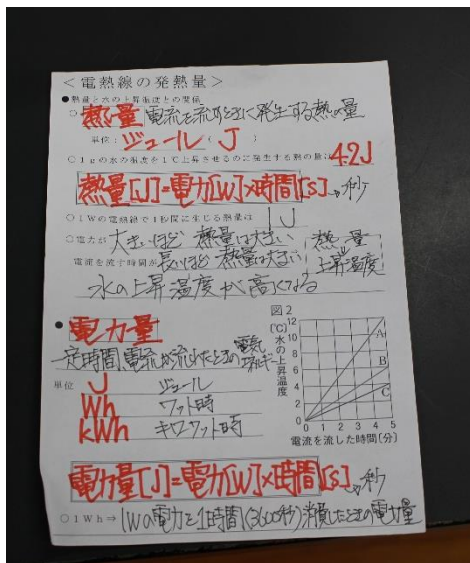 <電熱線の発熱量>
●熱量と水の上昇温度との関係
○熱量 電流を流すときに発生する熱の量
単位:ジュール(J)
○1gの水の温度を1℃上昇させるのに発生する熱の量は4.2J
熱量[J]=電力[W]×時間[s]→秒
○1Wの電熱線で1秒間に生じる熱量は 1J
○電力が 大きいほど 熱量は大きい 熱量
電流を流す時間が 長いほど 熱量は大きい 上昇温度
水の上昇温度が高くなる
●電力量
一定時間、電流が流れたときの電気
単位 J ジュール
Wh ワット時
kWh キロワット時
図2
[℃]
水の上昇温度
12
10
8
6
4
2
0
0 1 2 3 4 5
A
B
C
電流を流した時間[分]
電力量[J]=電力[W]×時間[s]→秒
○1Wh⇒1Wの電力を1時間(3600秒)消費したときの電力量